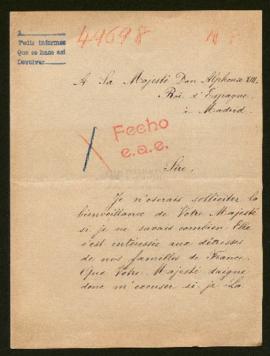 49698
Pedir informes
Que se haga así
Devolver
A Sa Majesté Don Alphonse XIII.
Roi d'Espagne
à Madrid.
Fecho
e.a.e.
Sire,
Je n'oserais solliciter la
bienveillance de Votre Majesté
si je ne savais combien Elle
s'est intéressée aux détresses
de nos familles de France.
Que Votre Majesté daigne
donc m'excuser si je La